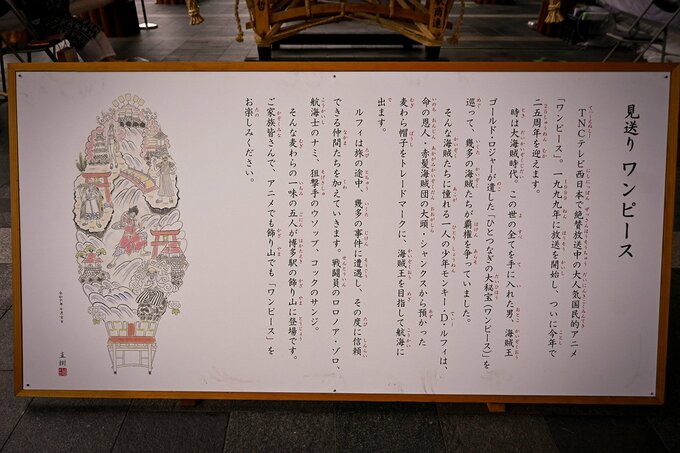 見送り ワンピース
TNCテレビ西日本で絶賛放送中の大人気国民的アニメ
「ワンピース」。一九九九年に放送を開始し、ついに今年で
二五周年を迎えます。
時は大海賊時代、この世の全てを手に入れた男、海賊王
ゴールド・ロジャーが遺した「ひとつなぎの大秘宝(ワンピース)」を
巡って、幾多の海賊たちが覇権を争っていました。
そんな海賊たちに憧れる一人の少年モンキー・D・ルフィは、
命の恩人、赤髪海賊団の大頭・シャンクスから預かった
麦わら帽子をトレードマークに、海賊王を目指して航海に
出ます。
ルフィは旅の途中、幾多の事件に遭遇し、その度に信頼
できる仲間たちを加えていきます。戦闘員のロロノア・ゾロ、
航海士のナミ、狙撃手のウソップ、コックのサンジ。
そんな麦わらの一味の五人が博多駅の飾り山に登場です。
ご家族皆さんで、アニメでも飾り山でも「ワンピース」を
お楽しみください。